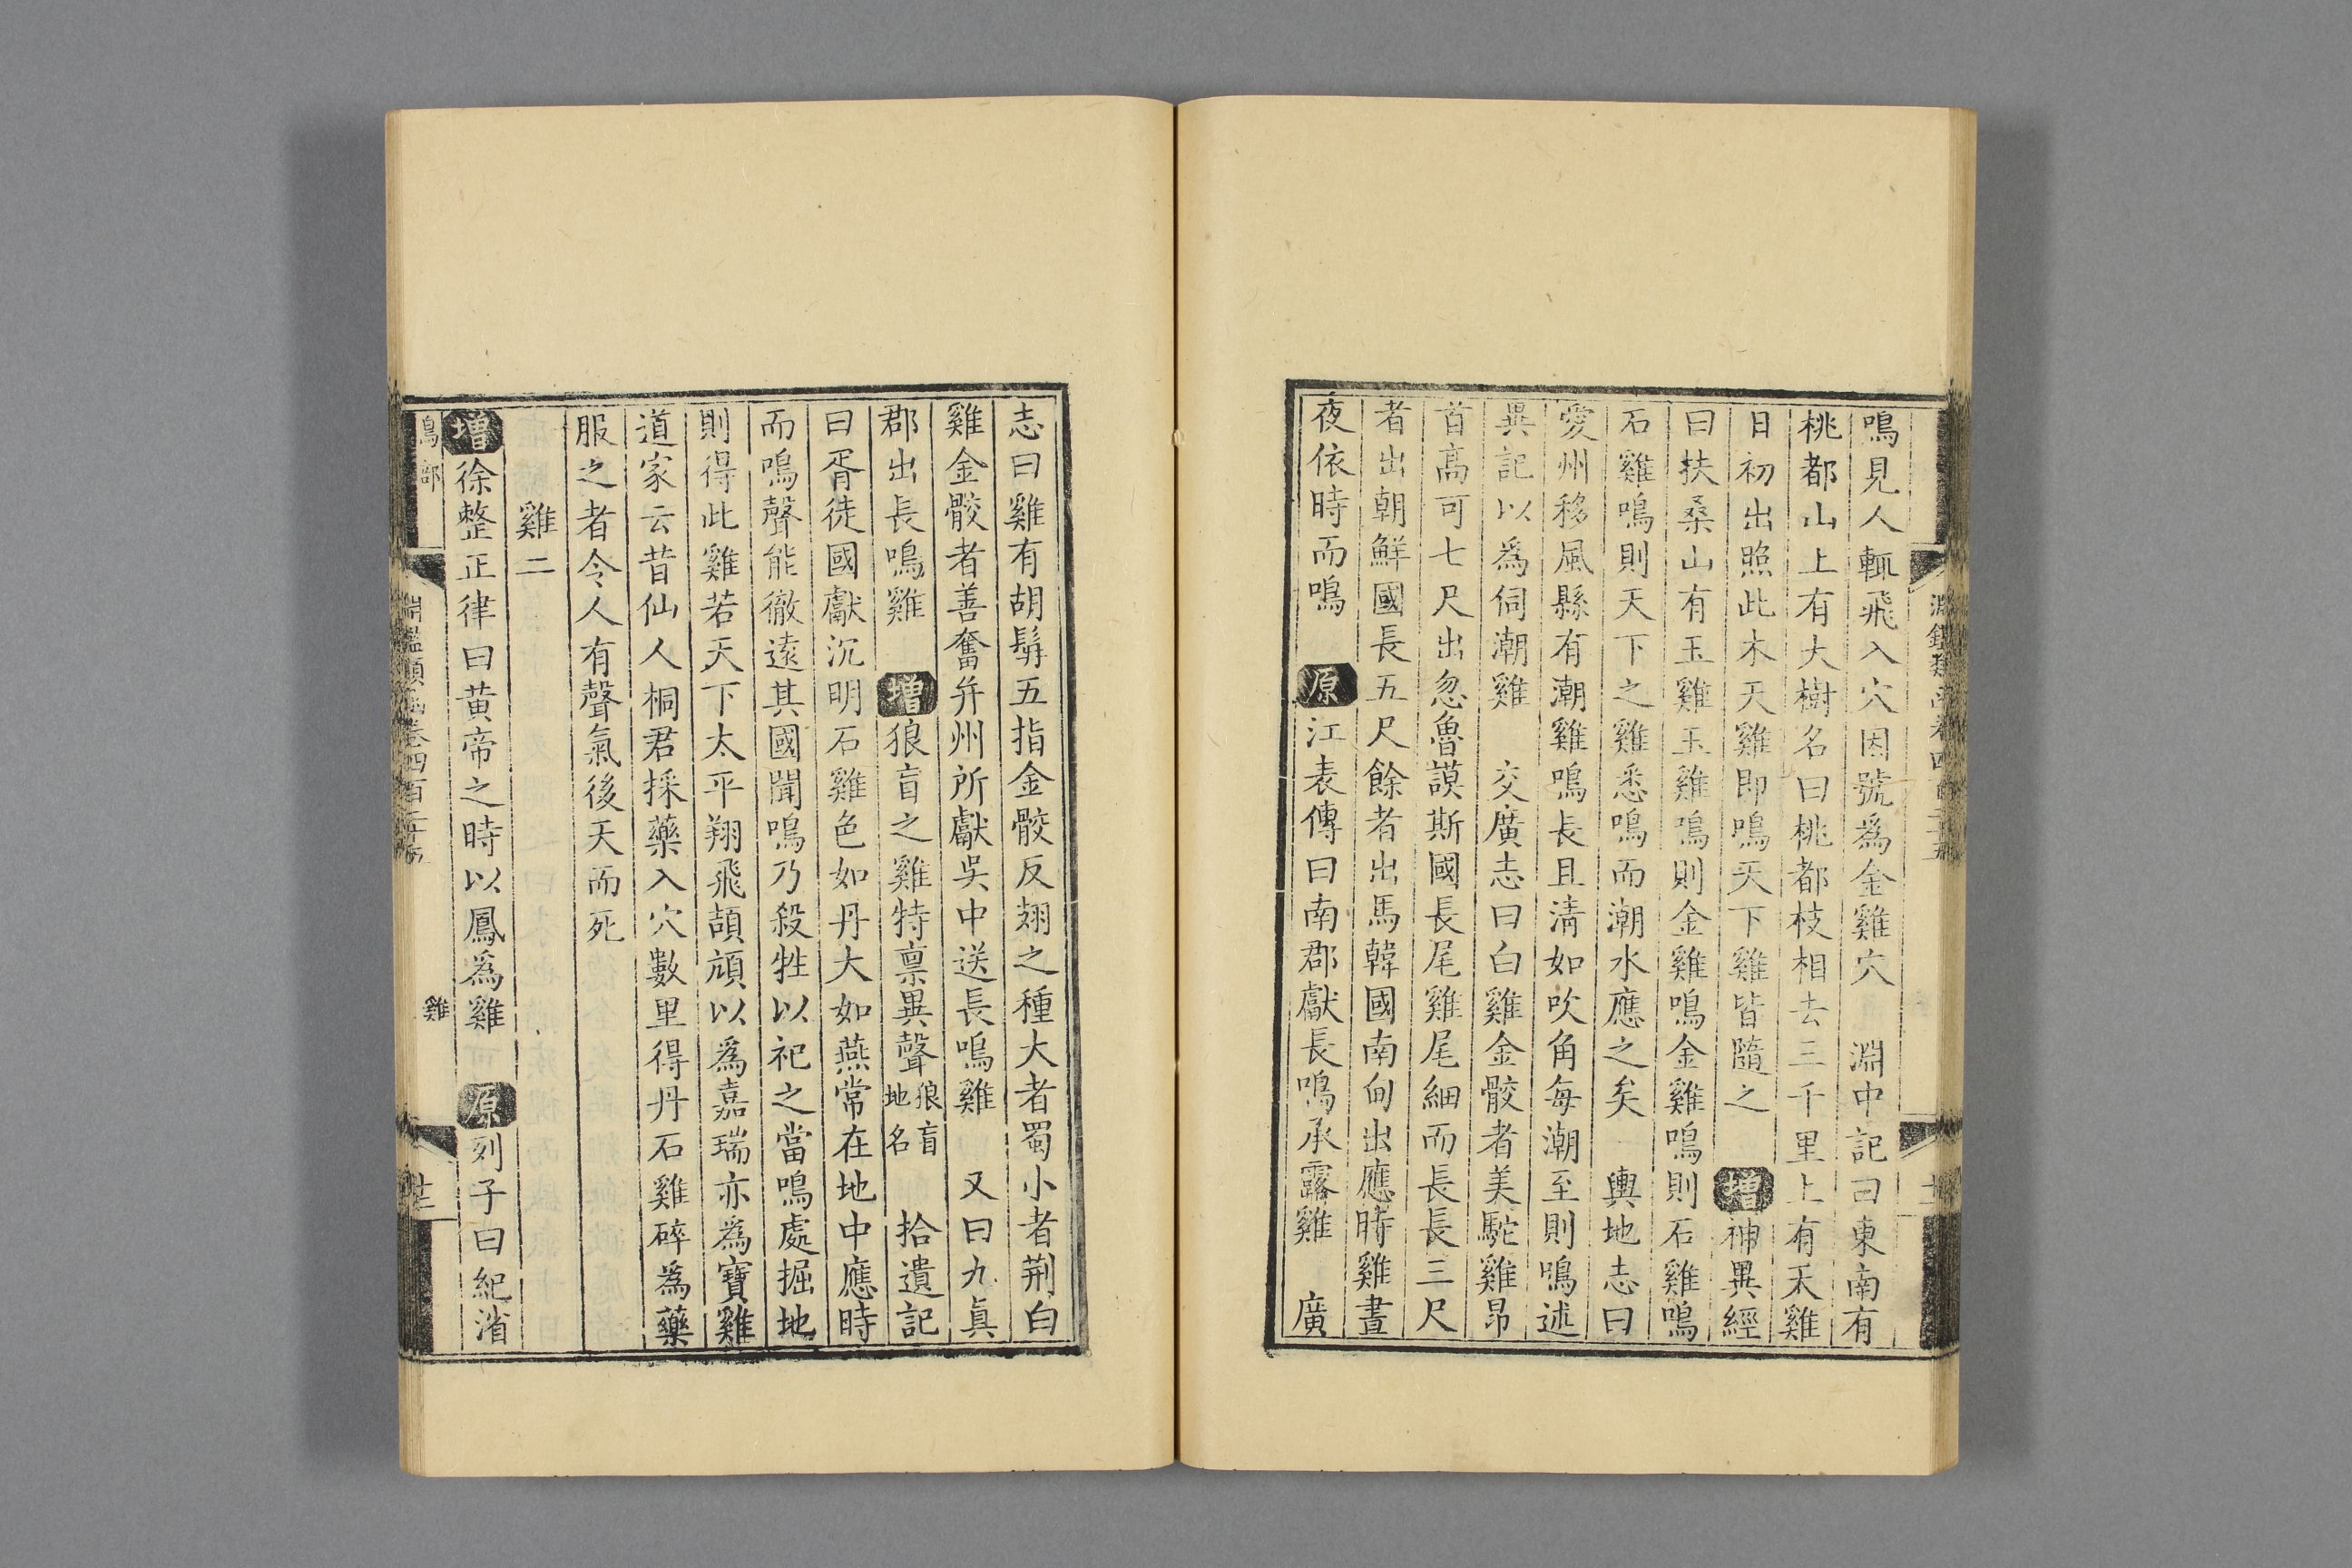 鳴見人輒飛入穴因號為金雞穴　淵中記曰東南有
桃都山上有大樹名曰桃都枝相去三千里上有天雞
日初出照此木天雞即鳴天下雞皆隨之　增神異經
曰扶桑山有玉雞玉雞鳴則金雞鳴金雞鳴則石雞鳴
石雞鳴則天下之雞悉鳴而潮水應之矣　輿地志曰
愛州移風縣有潮雞鳴長且清如吹角每潮至則鳴述
異記以為伺潮雞　交廣志曰白雞金骹者美駝雞昂
首高可七尺出忽魯謨斯國長尾雞尾細而長長三尺
者出朝鮮國長五尺餘者出馬韓國南甸出應時雞晝
夜依時而鳴　原江表傳曰南郡獻長鳴承露雞　廣
志曰雞有胡髯五指金骹反翅之種大者蜀小者荆白
雞金骹者善奮并州所獻吳中送長鳴雞　又曰九眞
郡出長鳴雞　增狼盲之雞特禀異聲狼盲地名　拾遺記
曰胥徒國獻沉明石雞色如丹大如燕常在地中應時
而鳴聲能徹遠其國聞鳴乃殺牲以祀之當鳴處掘地
則得此雞若天下太平翔飛頡頏以為嘉瑞亦為寶雞
道家云昔仙人桐君採藥入穴數里得丹石雞碎為藥
服之者令人有聲氣後天而死
雞二
增徐整正律曰黃帝之時以鳳為雞　原列子曰紀渻
雞